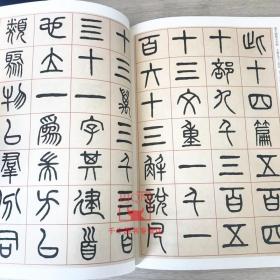 此十四篇五百四
十部九千三百五
十三文重一千一
百六十三解說凡
十三萬三千四百
四十一字其建首
也立一為耑方以
類聚物以群分同